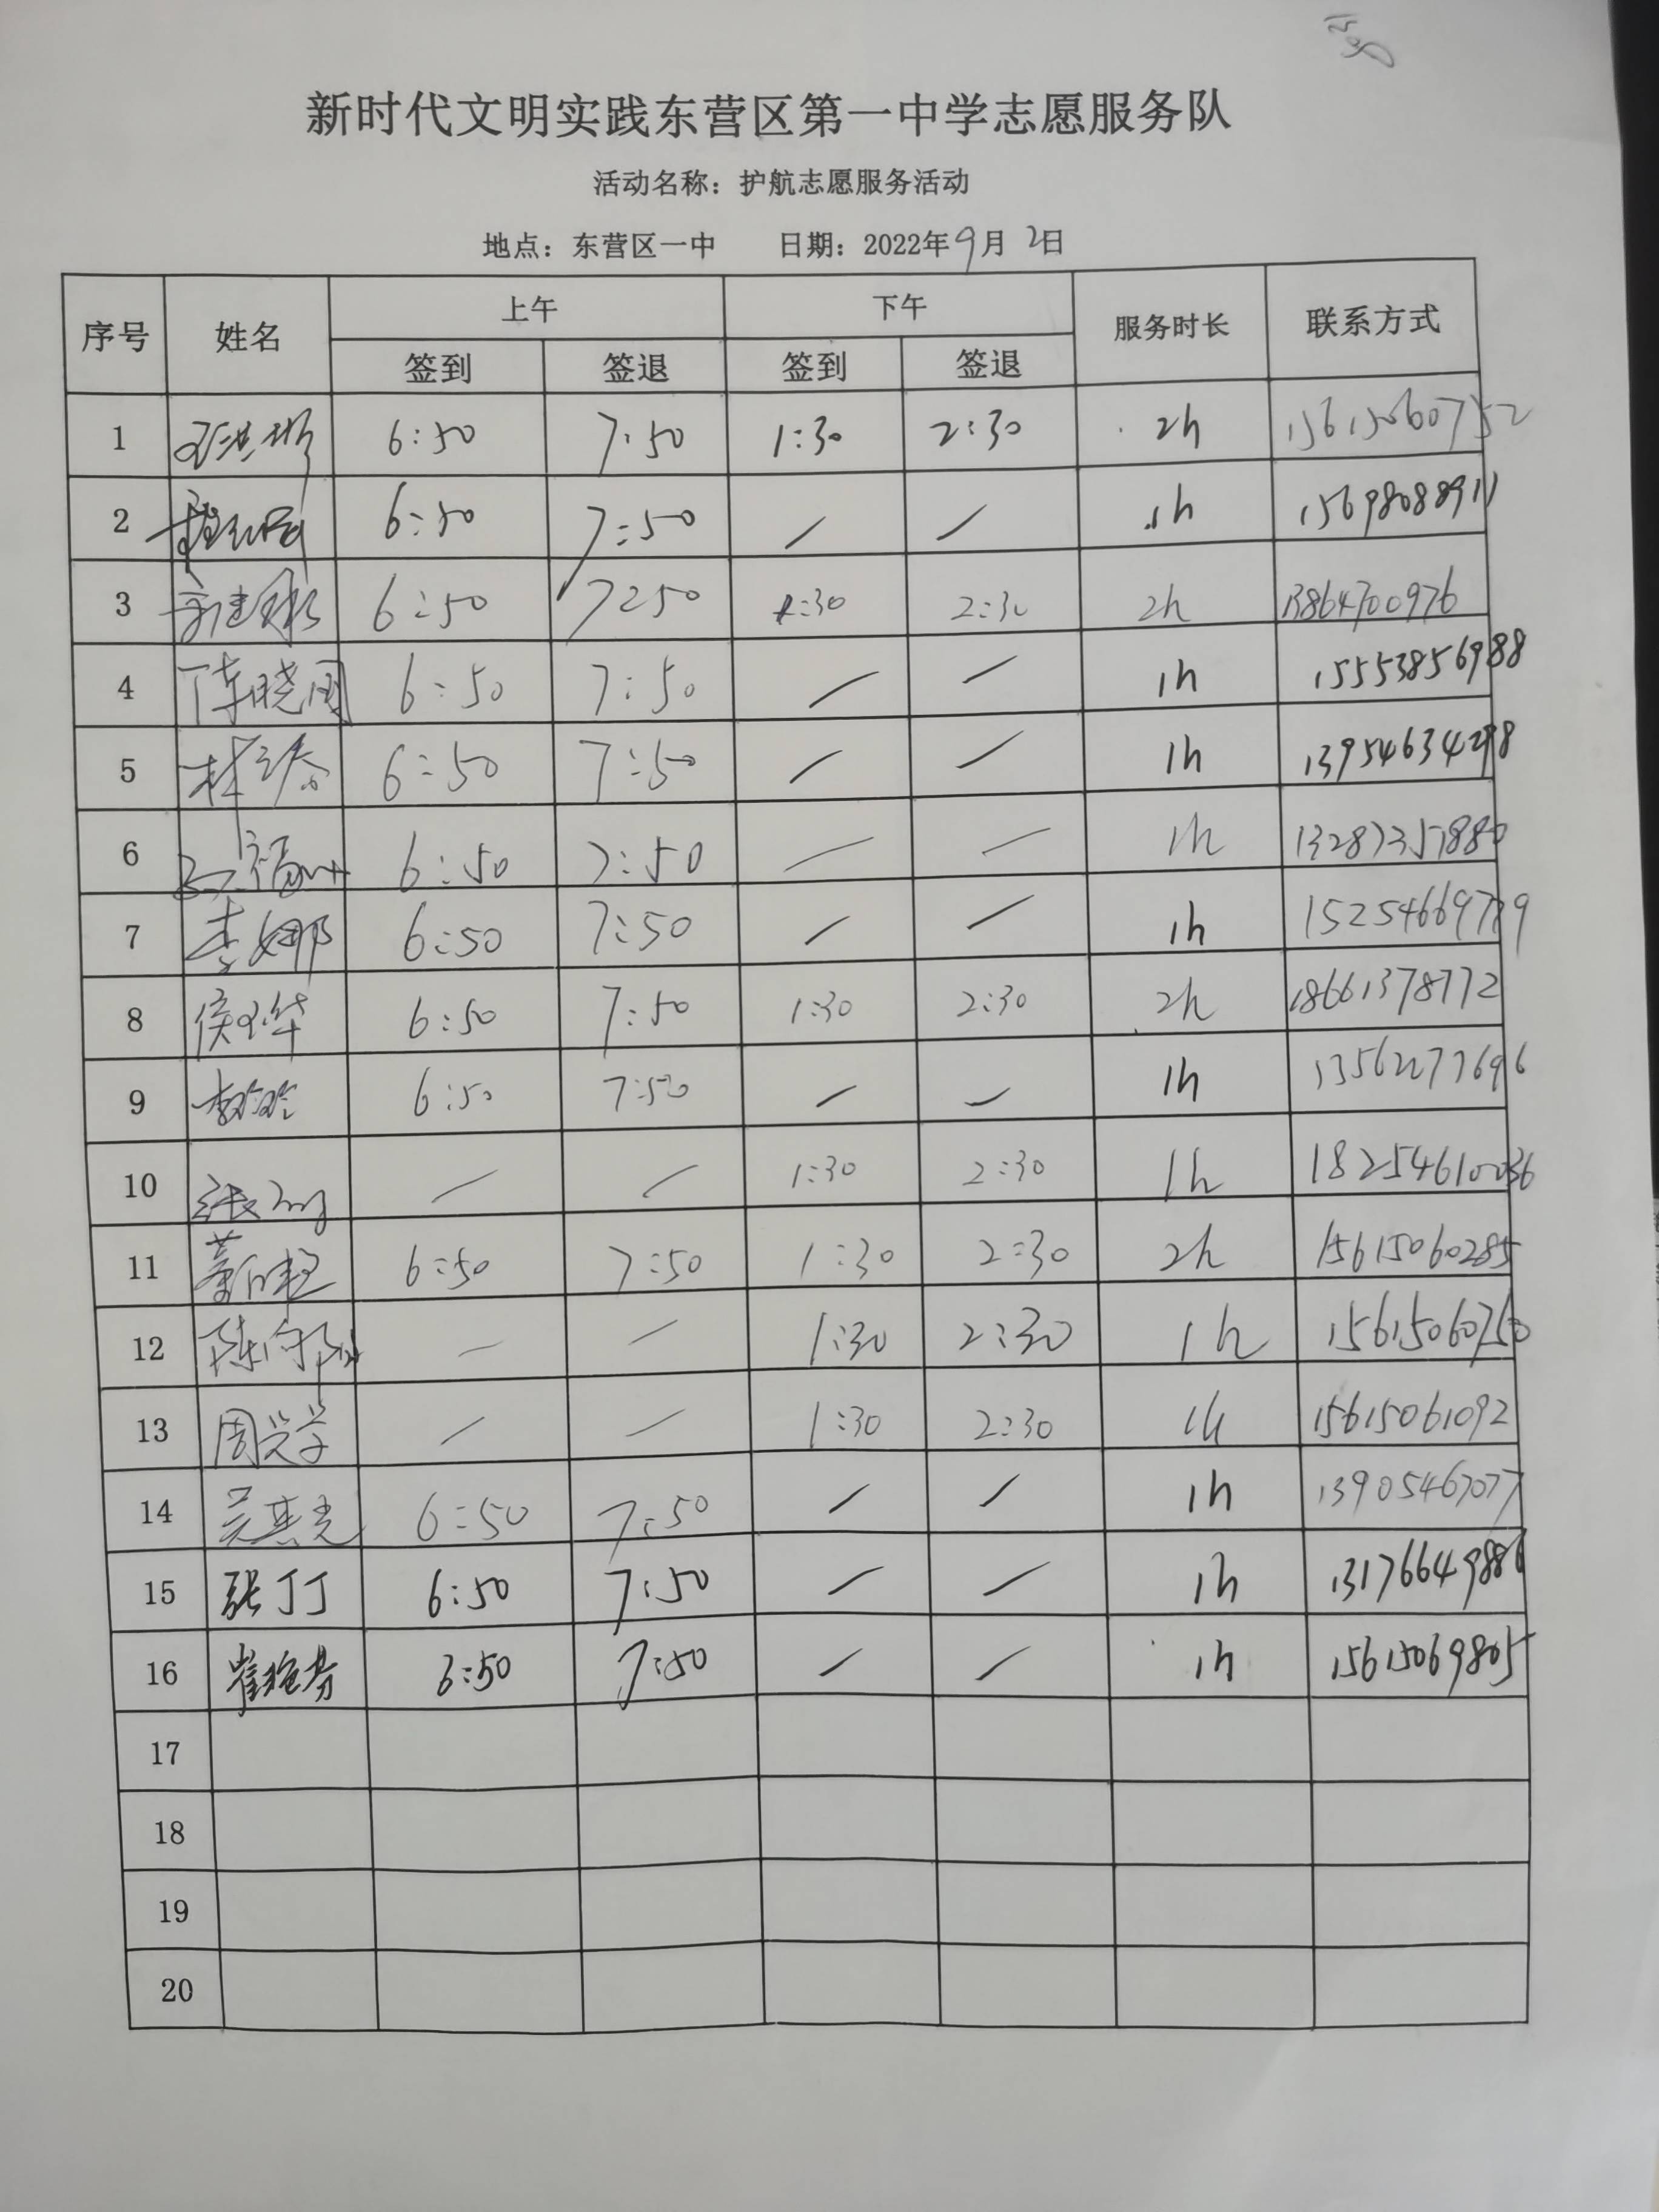 新时代文明实践东营区第一中学志愿服务队
活动名称：护航志愿服务活动
地点：东营区一中 日期：2022年9月2日
序号 姓名 上午 下午 服务时长 联系方式
签到 签退 签到 签退
1 6:50 7:50 1:30 2:30 2h 15615060752
2 6:50 7:50 / / 1h 15698088911
3 6:50 7:50 1:30 2:30 2h 13864700976
4 陈晓国 6:50 7:50 / / 1h 15553856988
5 6:50 7:50 / / 1h 13954634298
6 6:50 7:50 / / 1h 13287357880
7 李娜 6:50 7:50 / / 1h
8 6:50 7:50 1:30 2:30 2h 18661378772
9 6:50 7:50 / / 1h 13562277696
10 / / 1:30 2:30 1h 18254610036
11 6:50 7:50 1:30 2:30 2h 15615060285
12 / / 1:30 2:30 1h 15615060750
13 周兴学 / / 1:30 2:30 1h 15615061092
14 吴其光 6:50 7:50 / / 1h 13905467077
15 张丁丁 6:50 7:50 / / 1h 13176649886
16 6:50 7:50 / / 1h 15615069805
17
18
19
20